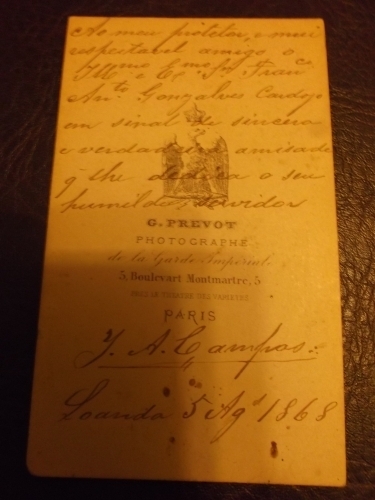 Ao meu protetor, e mui
respeitavel amigo o
Illmo e Exmo Sr. Franco
Anto Gonzalves Cardozo
em sinal de sincera
e verdadeira amisade
q lhe dedica o seu
humilde servidor
G. PREVOT
PHOTOGRAPHE
de la Garde Impériale
5, Boulevart Montmartre, 5
PRÈS LE THÉATRE DES VARIÉTÉS
PARIS
J. A. Campos
Loanda 5 Ago 1868